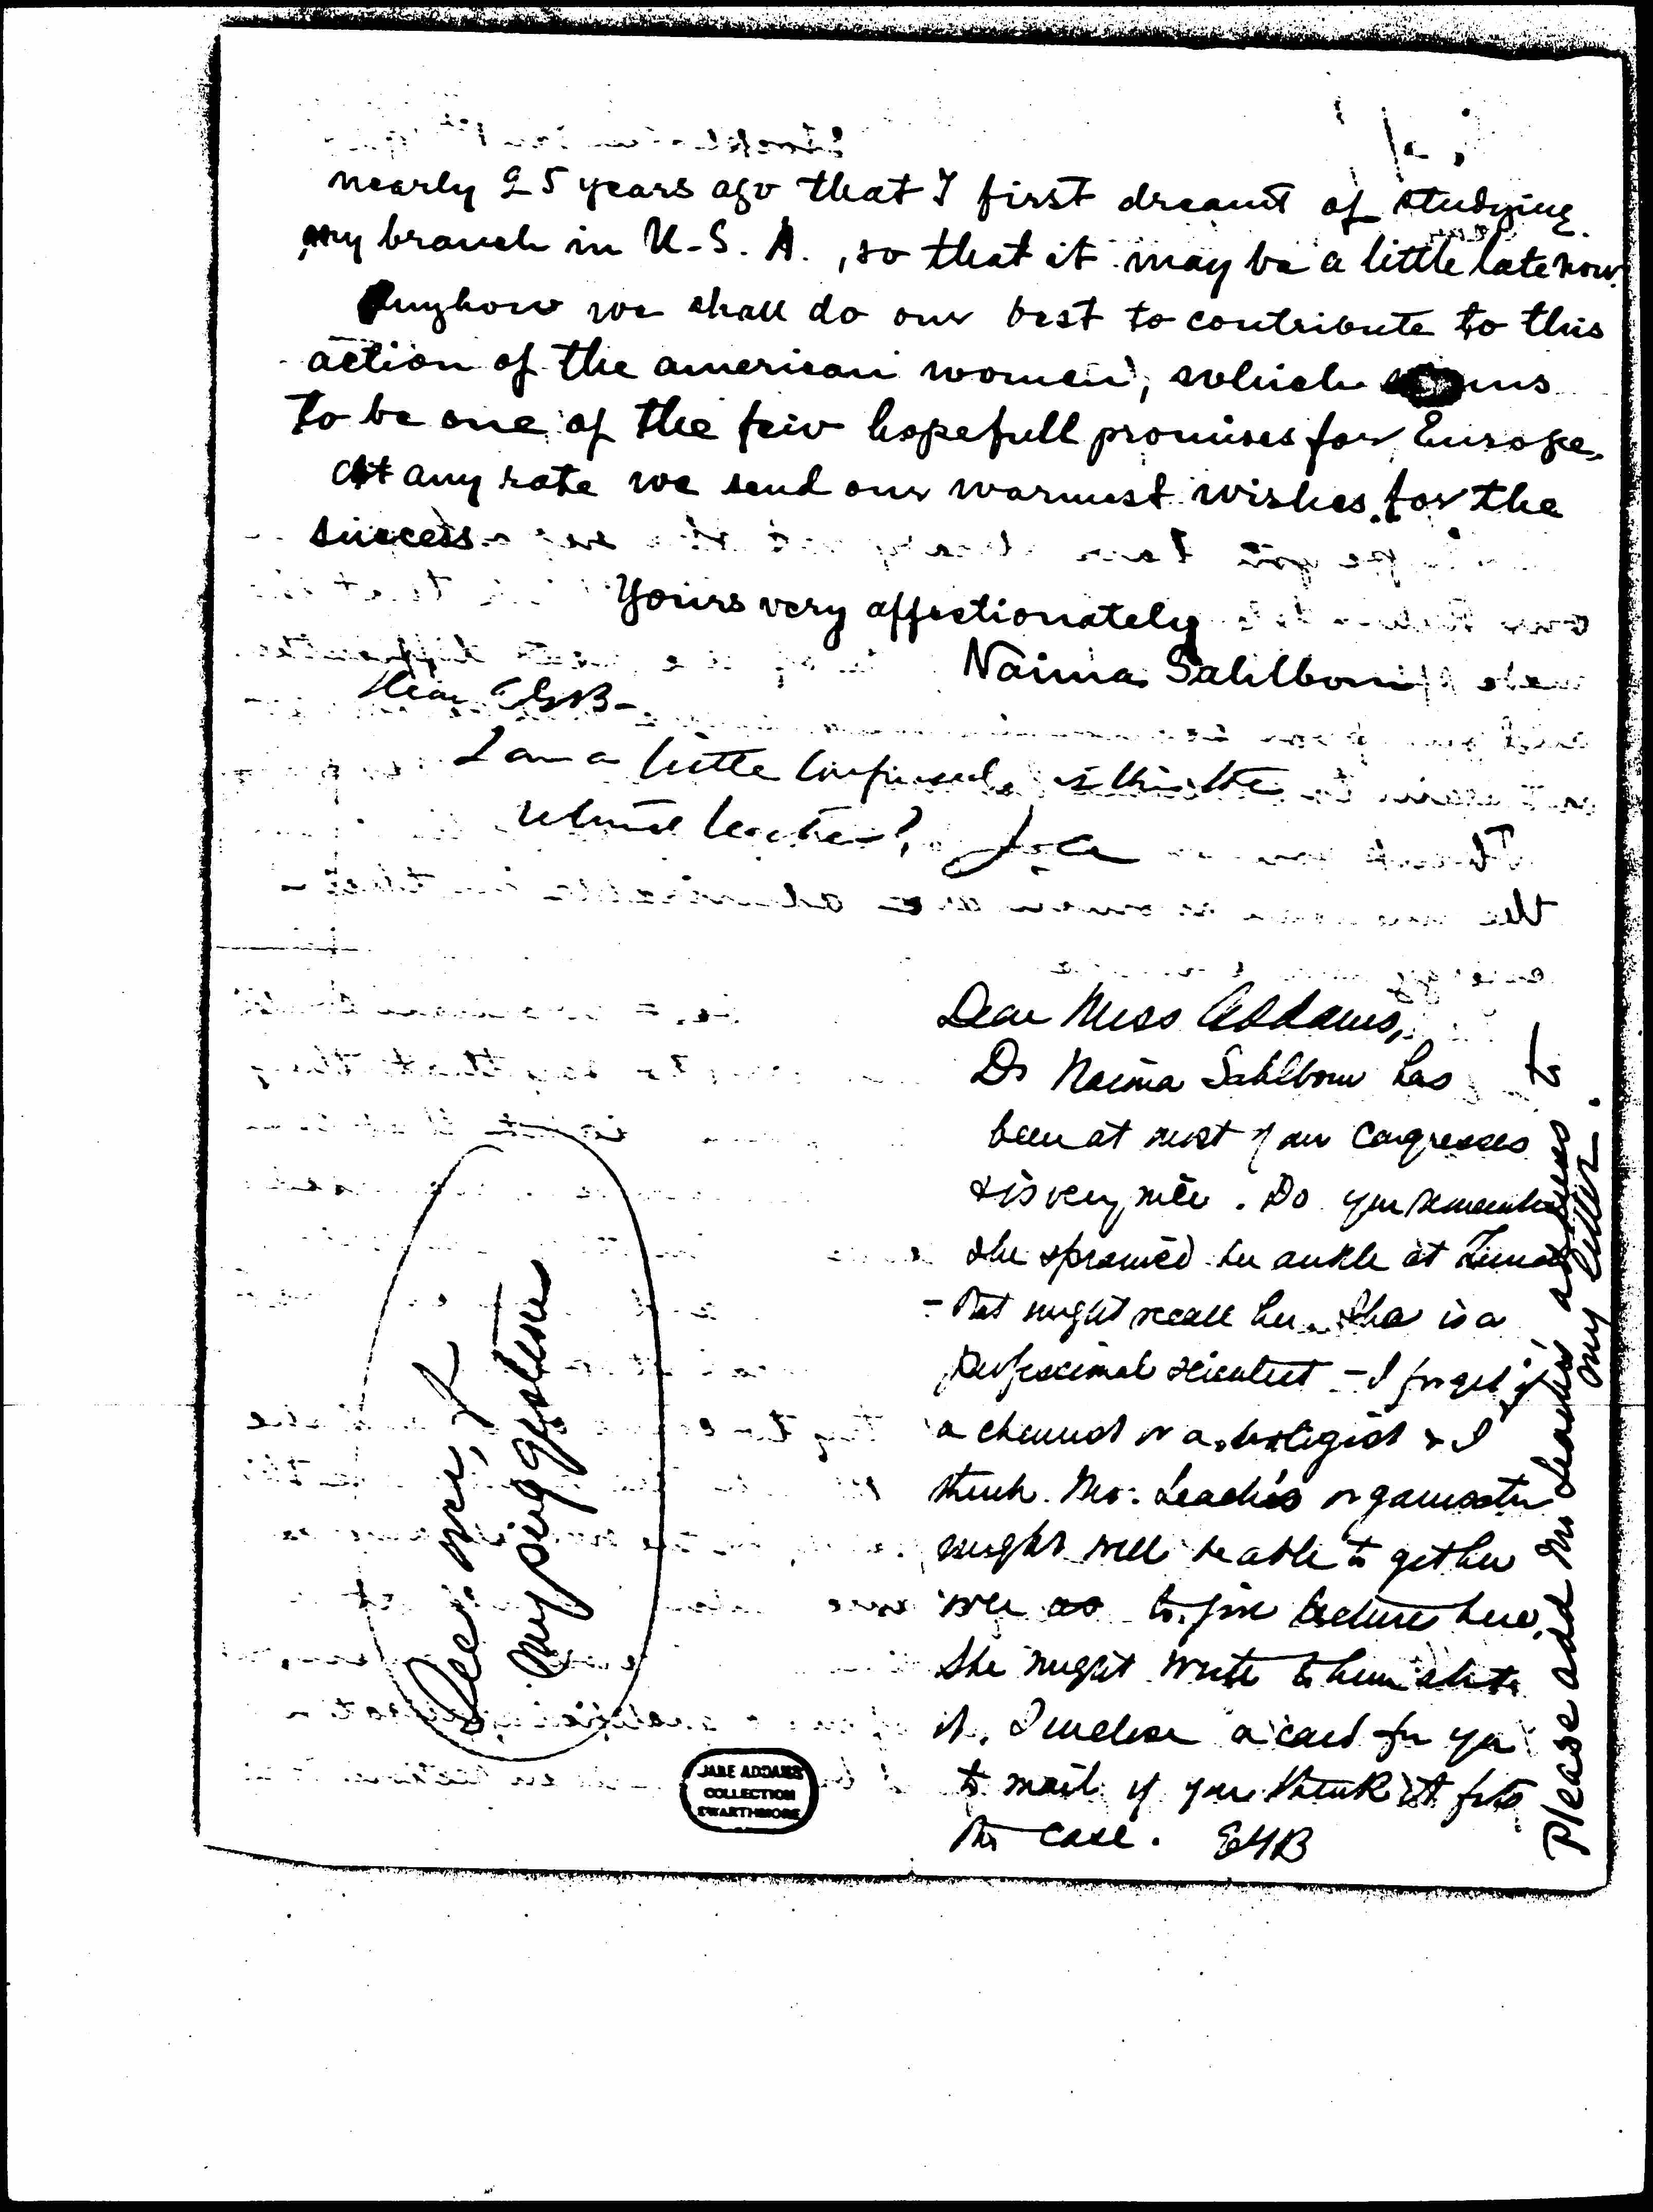 nearly 25 years ago that I first dreamt of studying
my branch in U.S.A., so that it may be a little late now.
Anyhow we shall do our best to contribute to this
action of the american women, which seems
to be one of the few hopefull promises for Europe.
At any rate we send our warmest wishes for the
success.
Yours very affectionately
Naima Sahlbom
Dear EGB-
I am a little confused, is this the
school teacher?
Dear Miss Addams,
Dr Naima Sahlbom has
been at most of our Congresses
& is very nice. Do you remember
she sprained her ankle at
- that might recall her. She is a
professional scientist - I forget if
a chemist or a biologist & I
think Mr. Leach's organization
might well be able to get her
over as to give lectures here.
She might write to him about
it. I enclose a card for you
to mail if you think it fits
the case. EGB
Please add Mr Leach's address to
my letter.
See over, &
my suggestion
JANE ADDAMS
COLLECTION
SWARTHMORE